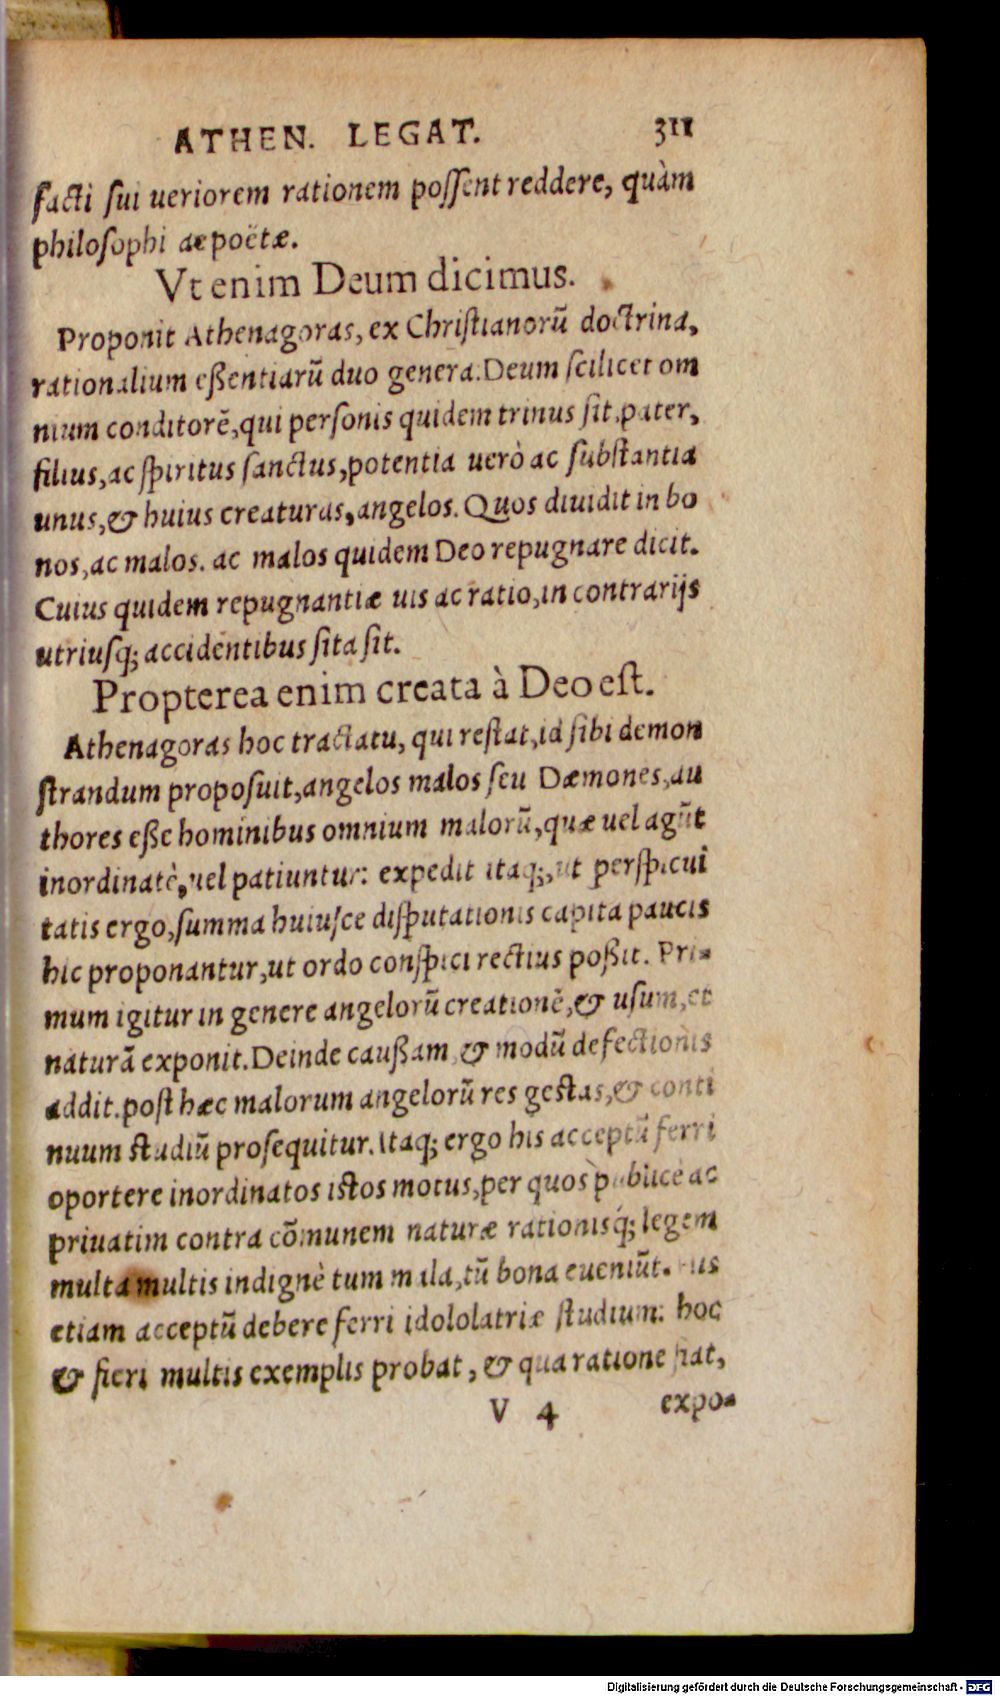 ATHEN. LEGAT. 311
facti sui ueriorem rationem possent reddere, quàm
philosophi ac poëtæ.
Vt enim Deum dicimus.
Proponit Athenagoras, ex Christianorũ doctrina,
rationalium eßentiarũ duo genera. Deum scilicet om
nium conditorẽ, qui personis quidem trinus sit, pater,
filius, ac spiritus sanctus, potentia uerò ac substantia
unus, & huius creaturas, angelos. Quos diuidit in bo
nos, ac malos. ac malos quidem Deo repugnare dicit.
Cuius quidem repugnantiæ uis ac ratio, in contrarijs
utriusq; accidentibus sita sit.
Propterea enim creata à Deo est.
Athenagoras hoc tractatu, qui restat, id sibi demon
strandum proposuit, angelos malos seu Dæmones, au
thores eße hominibus omnium malorũ, quæ uel agũt
inordinatè, uel patiuntur: expedit itaq;, ut perspicui
tatis ergo, summa huiusce disputationis capita paucis
hic proponantur, ut ordo conspici rectius poßit. Pri-
mum igitur in genere angelorũ creationẽ, & usum, et
naturã exponit. Deinde caußam, & modũ defectionis
addit. post hæc malorum angelorũ res gestas, & conti
nuum studiũ prosequitur. Itaq; ergo his acceptũ ferri
oportere inordinatos istos motus, per quos publicè ac
priuatim contra cõmunem naturæ rationisq́; legem
multa multis indignè tum mala, tũ bona eueniũt.
etiam acceptũ debere ferri idololatriæ studium: hoc
& fieri multis exemplis probat, & qua ratione fiat,
V 4 expo-
Digitalisierung gefördert durch die Deutsche Forschungsgemeinschaft - DFG